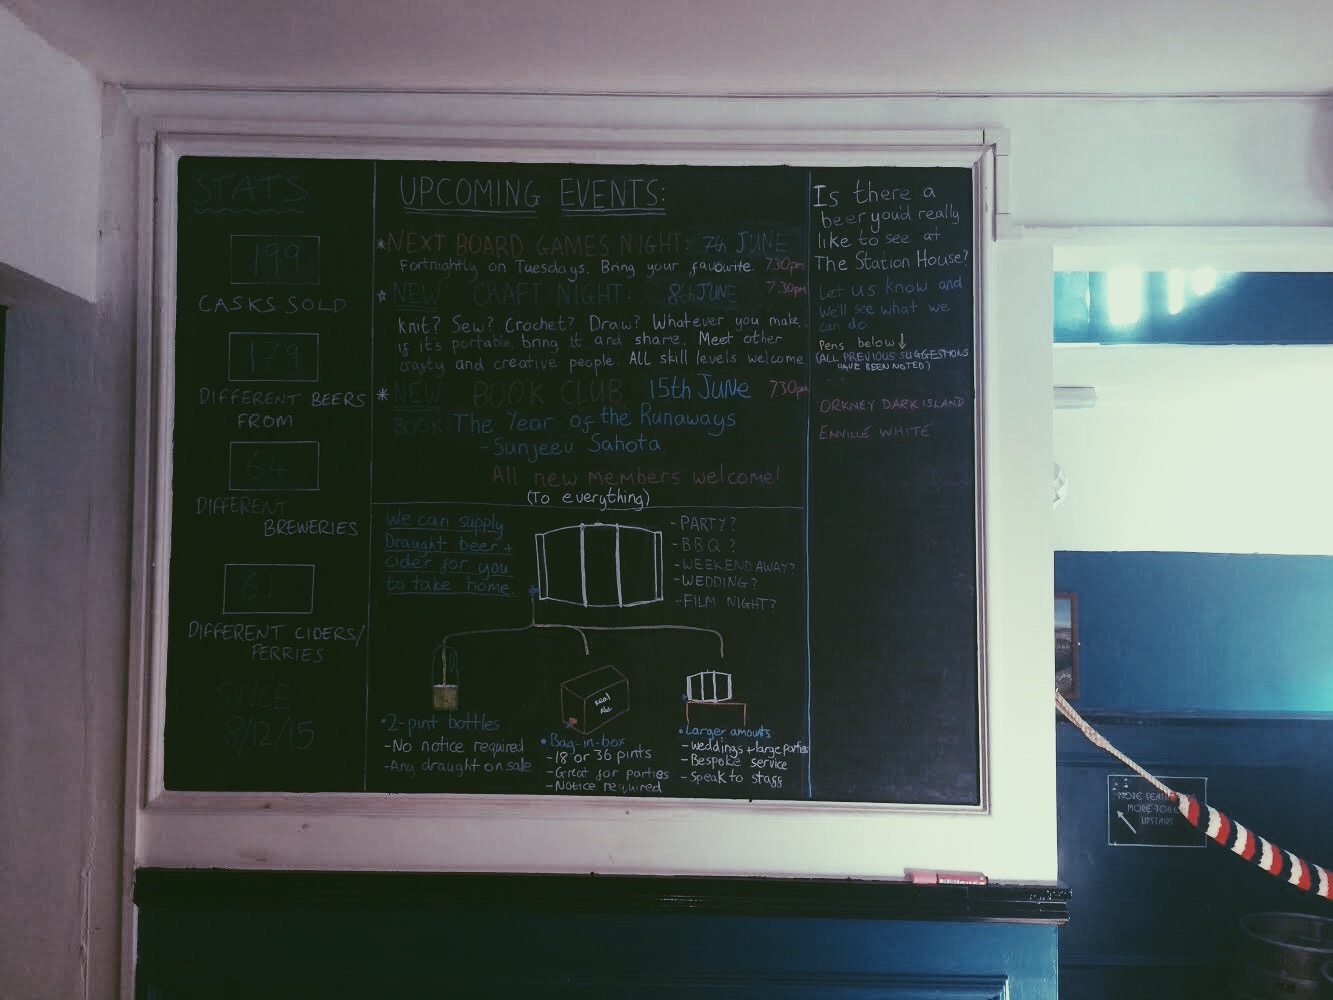 STATS
199
CASKS SOLD
179
DIFFERENT BEERS
FROM
64
DIFFERENT
BREWERIES
61
DIFFERENT CIDERS/
PERRIES
SINCE
8/12/15
UPCOMING EVENTS:
*NEXT BOARD GAMES NIGHT: 7th JUNE
Fortnightly on Tuesdays. Bring your favourite. 7.30pm
* NEW CRAFT NIGHT: 8th JUNE 7.30pm
Knit? Sew? Crochet? Draw? Whatever you make,
if it's portable, bring it and share. Meet other
crafty and creative people. All skill levels welcome
* NEW BOOK CLUB 15th JUNE 7.30pm
BOOK: The Year of the Runaways
- Sunjeev Sahota
All new members welcome!
(To everything)
We can supply
Draught beer +
cider for you
to take home.
- PARTY?
- BBQ?
- WEEKEND AWAY?
- WEDDING?
- FILM NIGHT?
Real
Ale
• 2-pint bottles
- No notice required
- Any draught on sale
• Bag-in-box
- 18 or 36 pints
- Great for parties
- Notice required
• Larger amounts
- Weddings + large parties
- Bespoke service
- Speak to staff
Is there a
beer you'd really
like to see at
The Station House?
Let us know and
We'll see what we
can do
Pens below ↓
(ALL PREVIOUS SUGGESTIONS
HAVE BEEN NOTED)
ORKNEY DARK ISLAND
ENVILLE WHITE
MORE SEATING AND
MORE TOILETS
UPSTAIRS